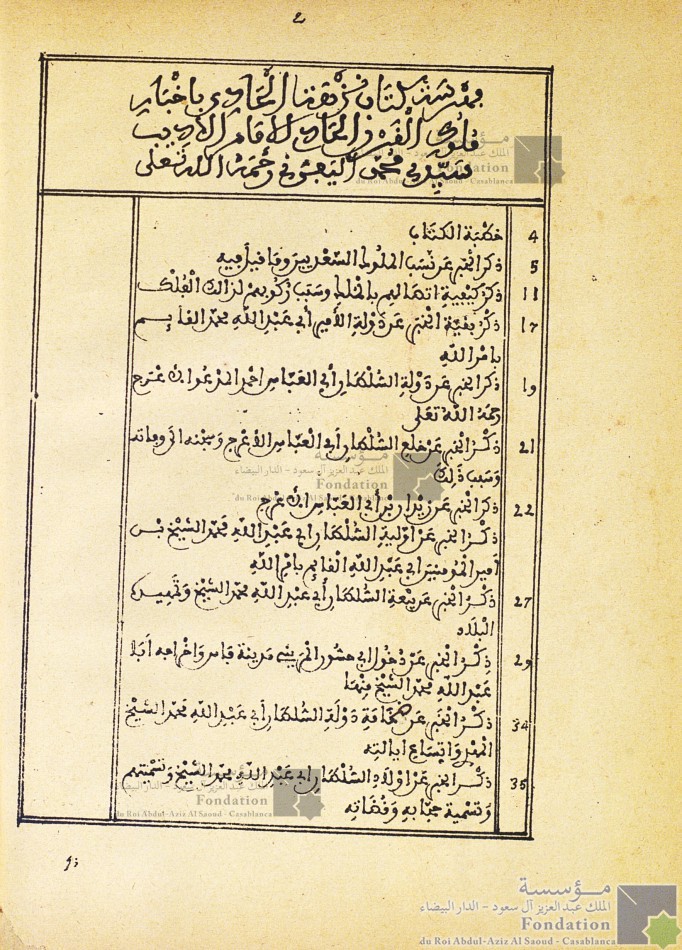 2
فهرسة كتاب نزهة الحادي باخبار
ملوك القرن الحادي للامام الاديب
سيدي محمد اليفرني رحمه الله تعلى
خطبة الكتاب 4
ذكر الخبر عن نسب الملوك السعديين وما قيل فيه 5
ذكر كيفية اتصالهم بالملك وسبب ركوبهم لذالك الفلك 11
ذكر بقية الخبر عن دولة الأمير أبي عبد الله محمد القايم 17
بامر الله
ذكر الخبر عن دولة السلطان أبي العباس احمد المدعو الاعرج 19
رحمه الله تعلى
ذكر الخبر عن خلع السلطان أبي العباس الاعرج وسجنه الى وفاته 21
وسبب ذلك
ذكر الخبر عن زيدان بن أبي العباس الاعرج 22
ذكر الخبر عن أولية السلطان أبي عبد الله محمد الشيخ بن
أمير المومنين أبي عبد الله القايم بامر الله
ذكر الخبر عن بيعة السلطان أبي عبد الله محمد الشيخ وتمهيده 27
البلاد
ذكر الخبر عن دخول ابي حسون المريني مدينة فاس واخراجه أبا 29
عبد الله محمد الشيخ منها
ذكر الخبر عن ضخامة دولة السلطان أبي عبد الله محمد الشيخ 34
المهدي واتساع ايالته
ذكر الخبر عن اولاد السلطان ابي عبد الله محمد الشيخ وتسميتهم 35
وتسمية حجابه وقضاته
مؤسسة
الملك عبد العزيز آل سعود - الدار البيضاء
Fondation
du Roi Abdul-Aziz Al Saoud - Casablanca